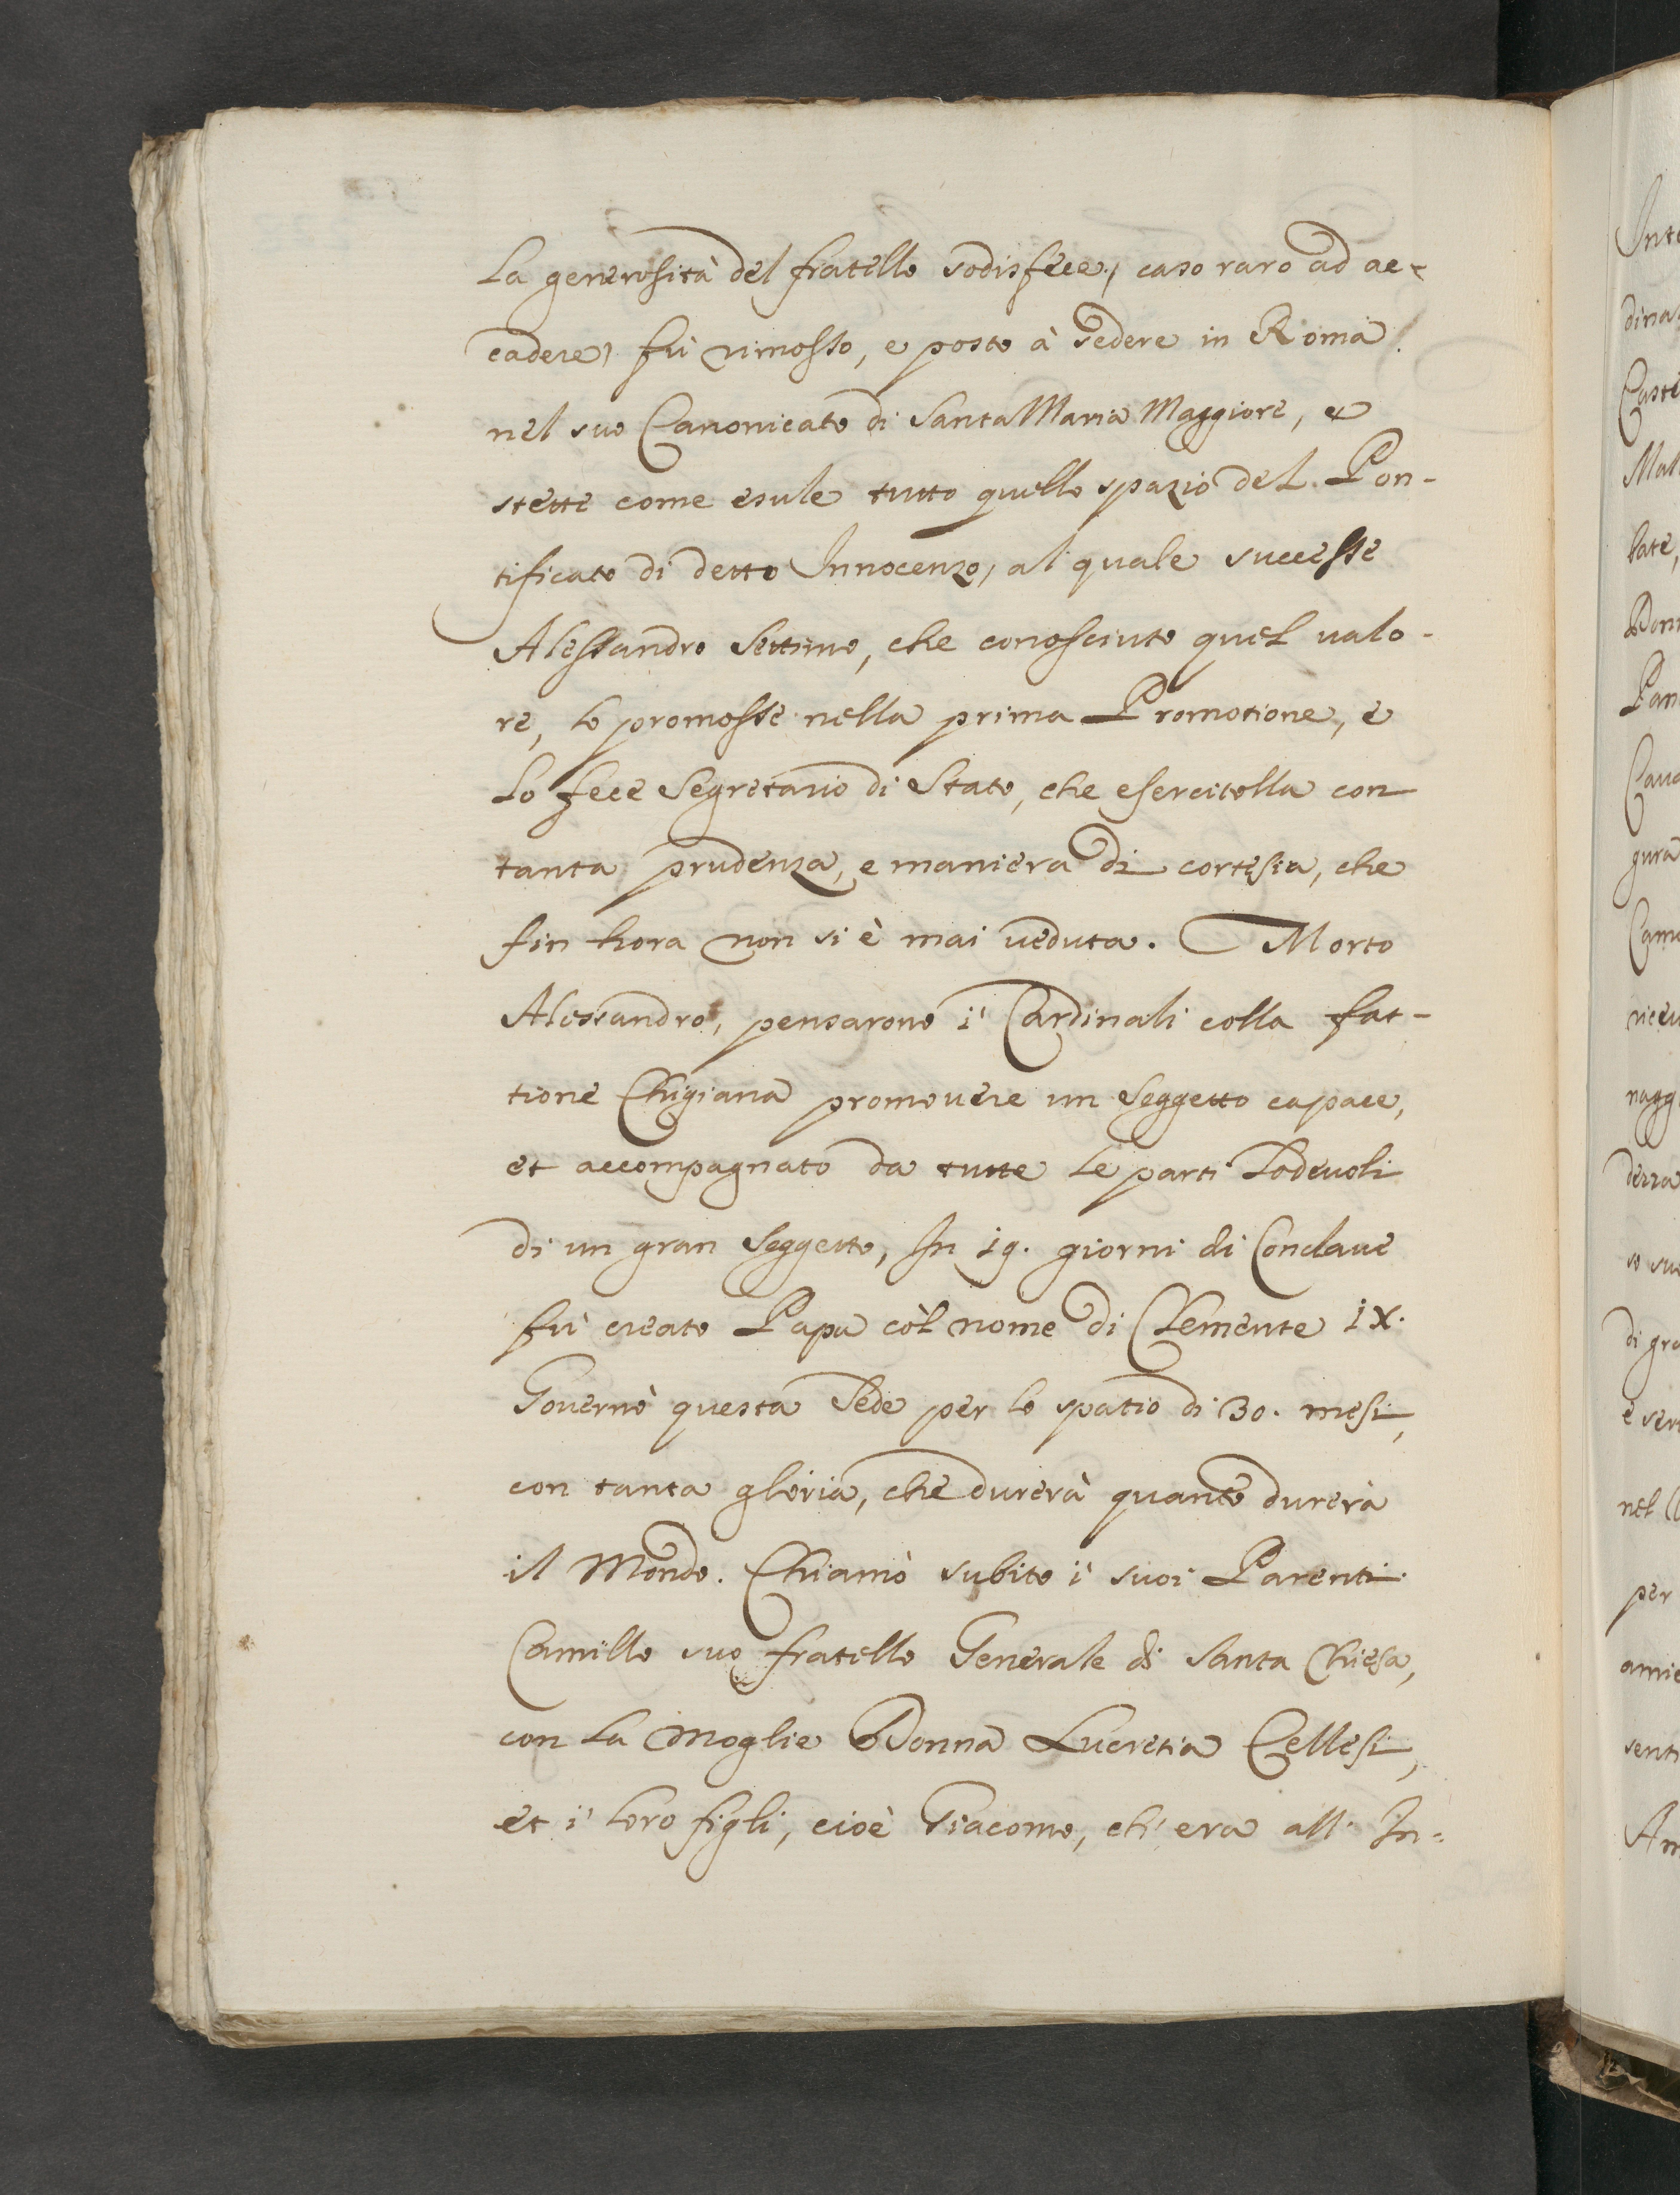 La generosità del fratello sodisfece, caso raro ad ac-
cadere, fù rimosso, e posto à sedere in Roma
nel suo Canonicato di Santa Maria Maggiore, e
stette come esule tutto quello spazio del Pon-
tificato di detto Innocenzo, al quale successe
Alessandro Settimo, che conosciuto quel valo-
re, lo promosse nella prima Promotione, e
lo fece Segretario di Stato, che esercitolla con
tanta prudenza, e maniera di cortesia, che
fin hora non si è mai veduta. Morto
Alessandro, pensarono i Cardinali colla fat-
tione Chigiana promovere un Seggetto capace,
et accompagnato da tutte le parti Lodevoli
di un gran Seggetto, In 19. giorni di Conclave
fù creato Papa còl nome di Clemente IX.
Governò questa Sede per lo spatio di 30. mesi,
con tanta gloria, che durerà quanto durerà
il Mondo. Chiamò subito i suoi Parenti
Camillo suo fratello Generale di Santa Chiesa,
con la Moglie Donna Lucretia Cellesi,
et i loro figli, cioè Giacomo, ch'era all' In-